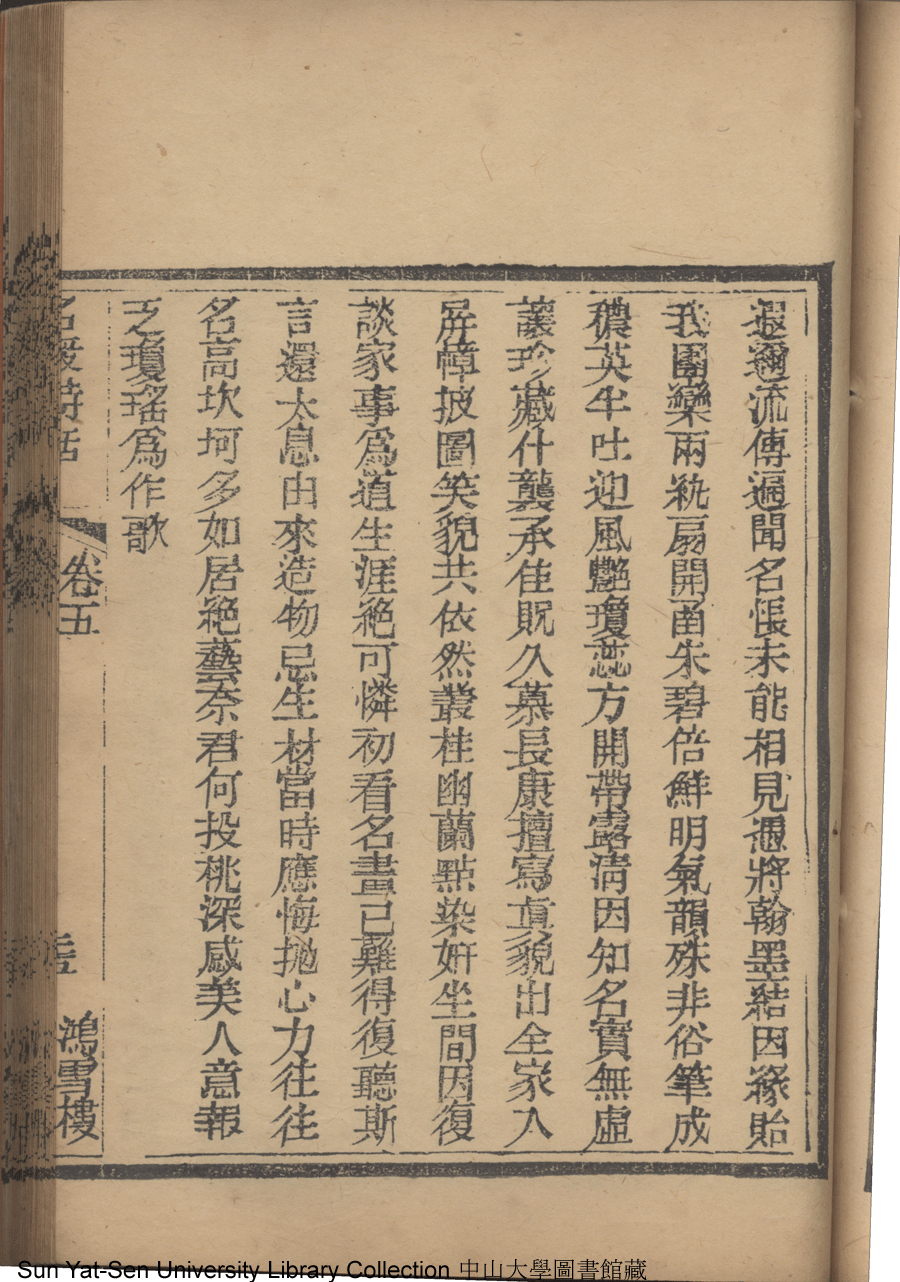 遐邇流傳遍聞名悵未能相見憑將翰墨結因緣貽
我團欒兩紈扇開函朱碧倍鮮明氣韻殊非俗筆成
穠英半吐迎風艷瓊蕊方開帶露淸因知名實無虛
讓珍藏什襲承佳貺久慕長康擅寫眞貌出全家入
屏幛披圖笑貌共依然叢桂幽蘭點染姸坐間因復
談家事爲道生涯絶可憐初看名畫已難得復聽斯
言還太息由來造物忌生材當時應悔抛心力往往
名高坎坷多如居絶藝奈君何投桃深感美人意報
之瓊瑤爲作歌
名媛詩話
卷五
鴻雪樓
Sun Yat-Sen University Library Collection 中山大學圖書館藏